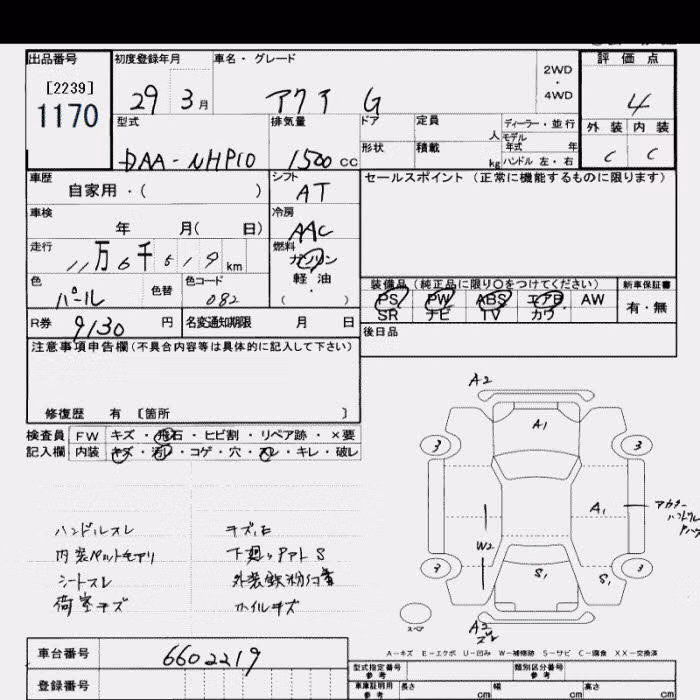 出品番号 初度登録年月 車名・グレード 評価点
[2239]
1170
29 3月 アクア G 2WD・4WD 4
型式 排気量 ドア 定員 人 ディーラー・並行 外装 内装
モデル年式 年
DAA-NHP10 1500 CC 形状 積載 kg ハンドル 左・右 C C
車歴 シフト セールスポイント (正常に機能するものに限ります)
自家用・( ) AT
車検 冷房
年 月( 日) AAC
走行 燃料
11万6千519km ガソリン
軽油
色 色替 色コード ・
パール 082 ( )
装備品(純正品に限り○をつけてください) 新車保証書
PS PW ABS エアB AW 有・無
SR ナビ TV カワ
R券 9130 円 名変通知期限 月 日 後日品
注意事項申告欄(不具合内容等は具体的に記入して下さい)
修復歴 有 〔箇所 〕
検査員 FW キズ・飛石・ヒビ割・リペア跡・×要
記入欄 内装 キズ・汚レ・コゲ・穴・スレ・キレ・破レ
ハンドルスレ
シートスレ
荷室キズ
下廻り
ホイルキズ
A2
A1
3 3
A1
W2
3 3
S1 S1
スペア
A2
A-キズ E-エクボ U-凹み W-補修跡 S-サビ C-腐食 XX-交換済
車台番号 6602219
登録番号
型式指定番号 参考 類別区分番号 参考
車庫証明用 参考 長さ cm 幅 cm 高さ cm